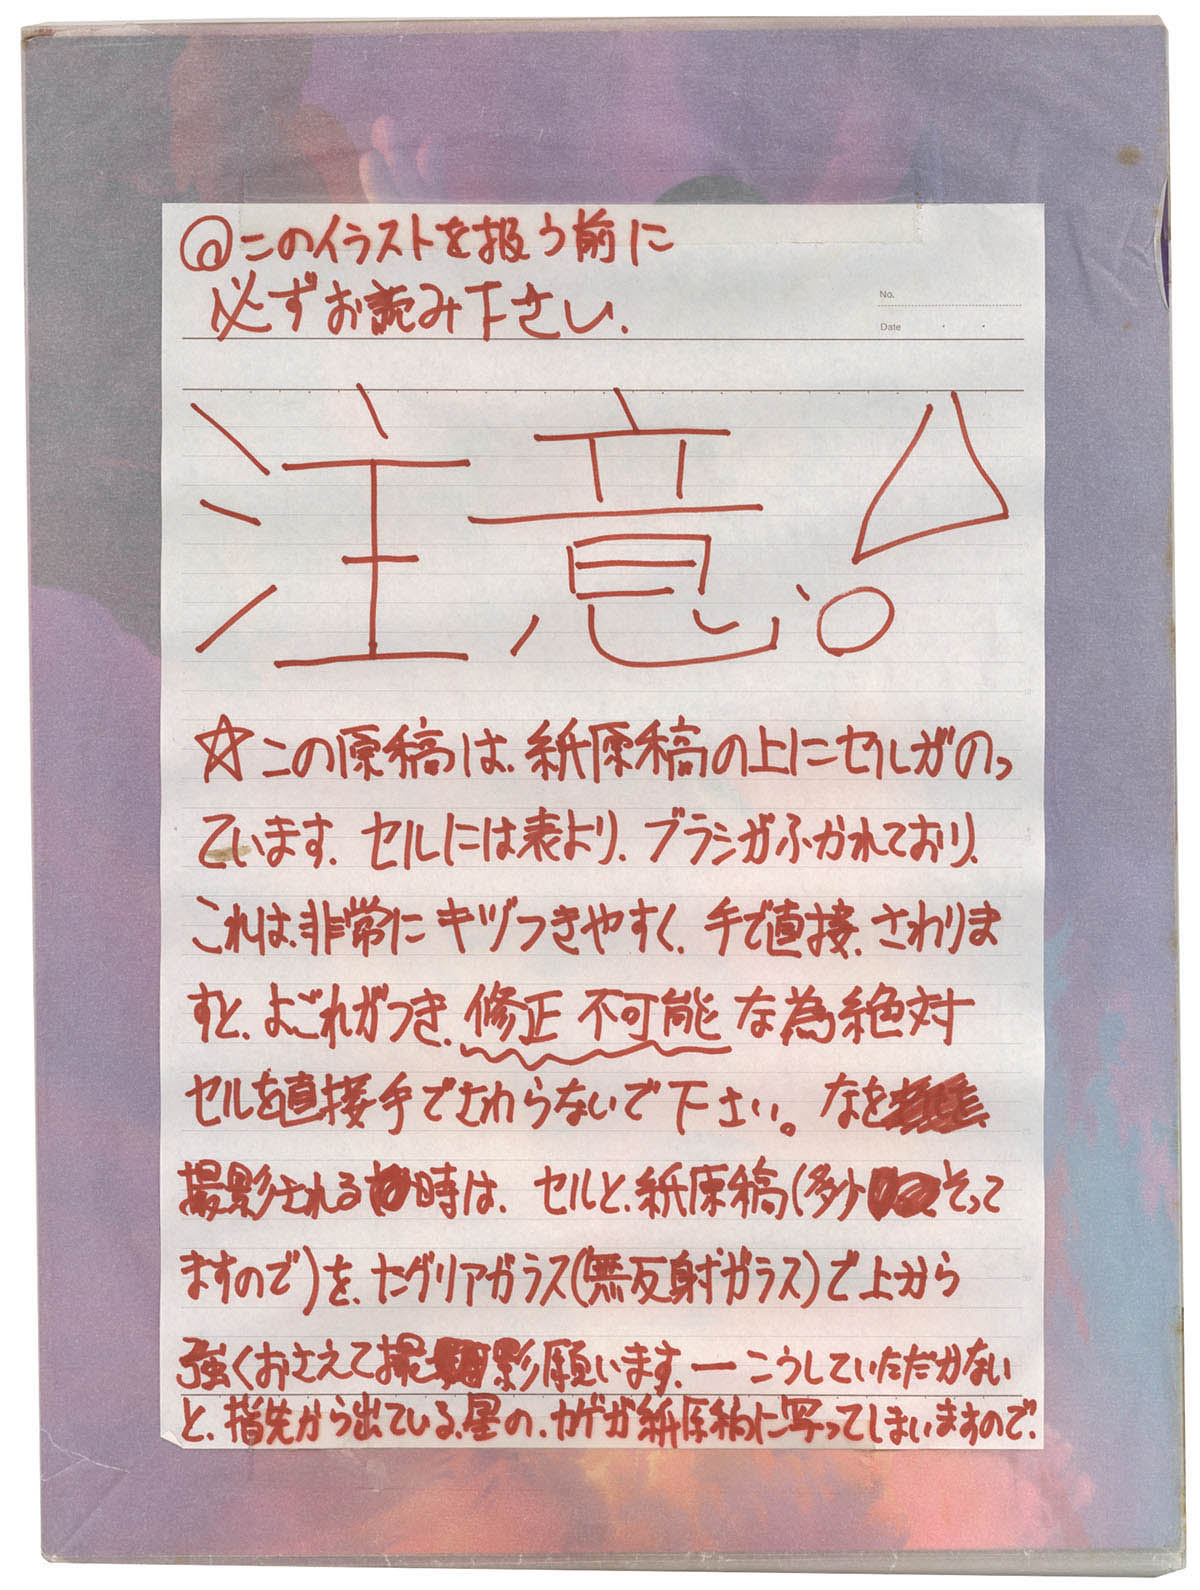 ◎このイラストを扱う前に
必ずお読み下さい.
No.
Date
注意!
☆この原稿は、紙原稿の上にセルがのっ
ています. セルには表より、ブラシがふかれており、
これは、非常にキヅつきやすく、手で直接、さわりま
すと、よごれがつき、修正不可能な為絶対
セルを直接手でさわらないで下さい。なを
撮影される時は、セルと、紙原稿(多少そって
ますので)を、セグリアガラス(無反射ガラス)で上から
強くおさえて撮影願います. ーこうしていただかない
と、指先から出ている、星の、カゲが紙原稿に写ってしまいますので、